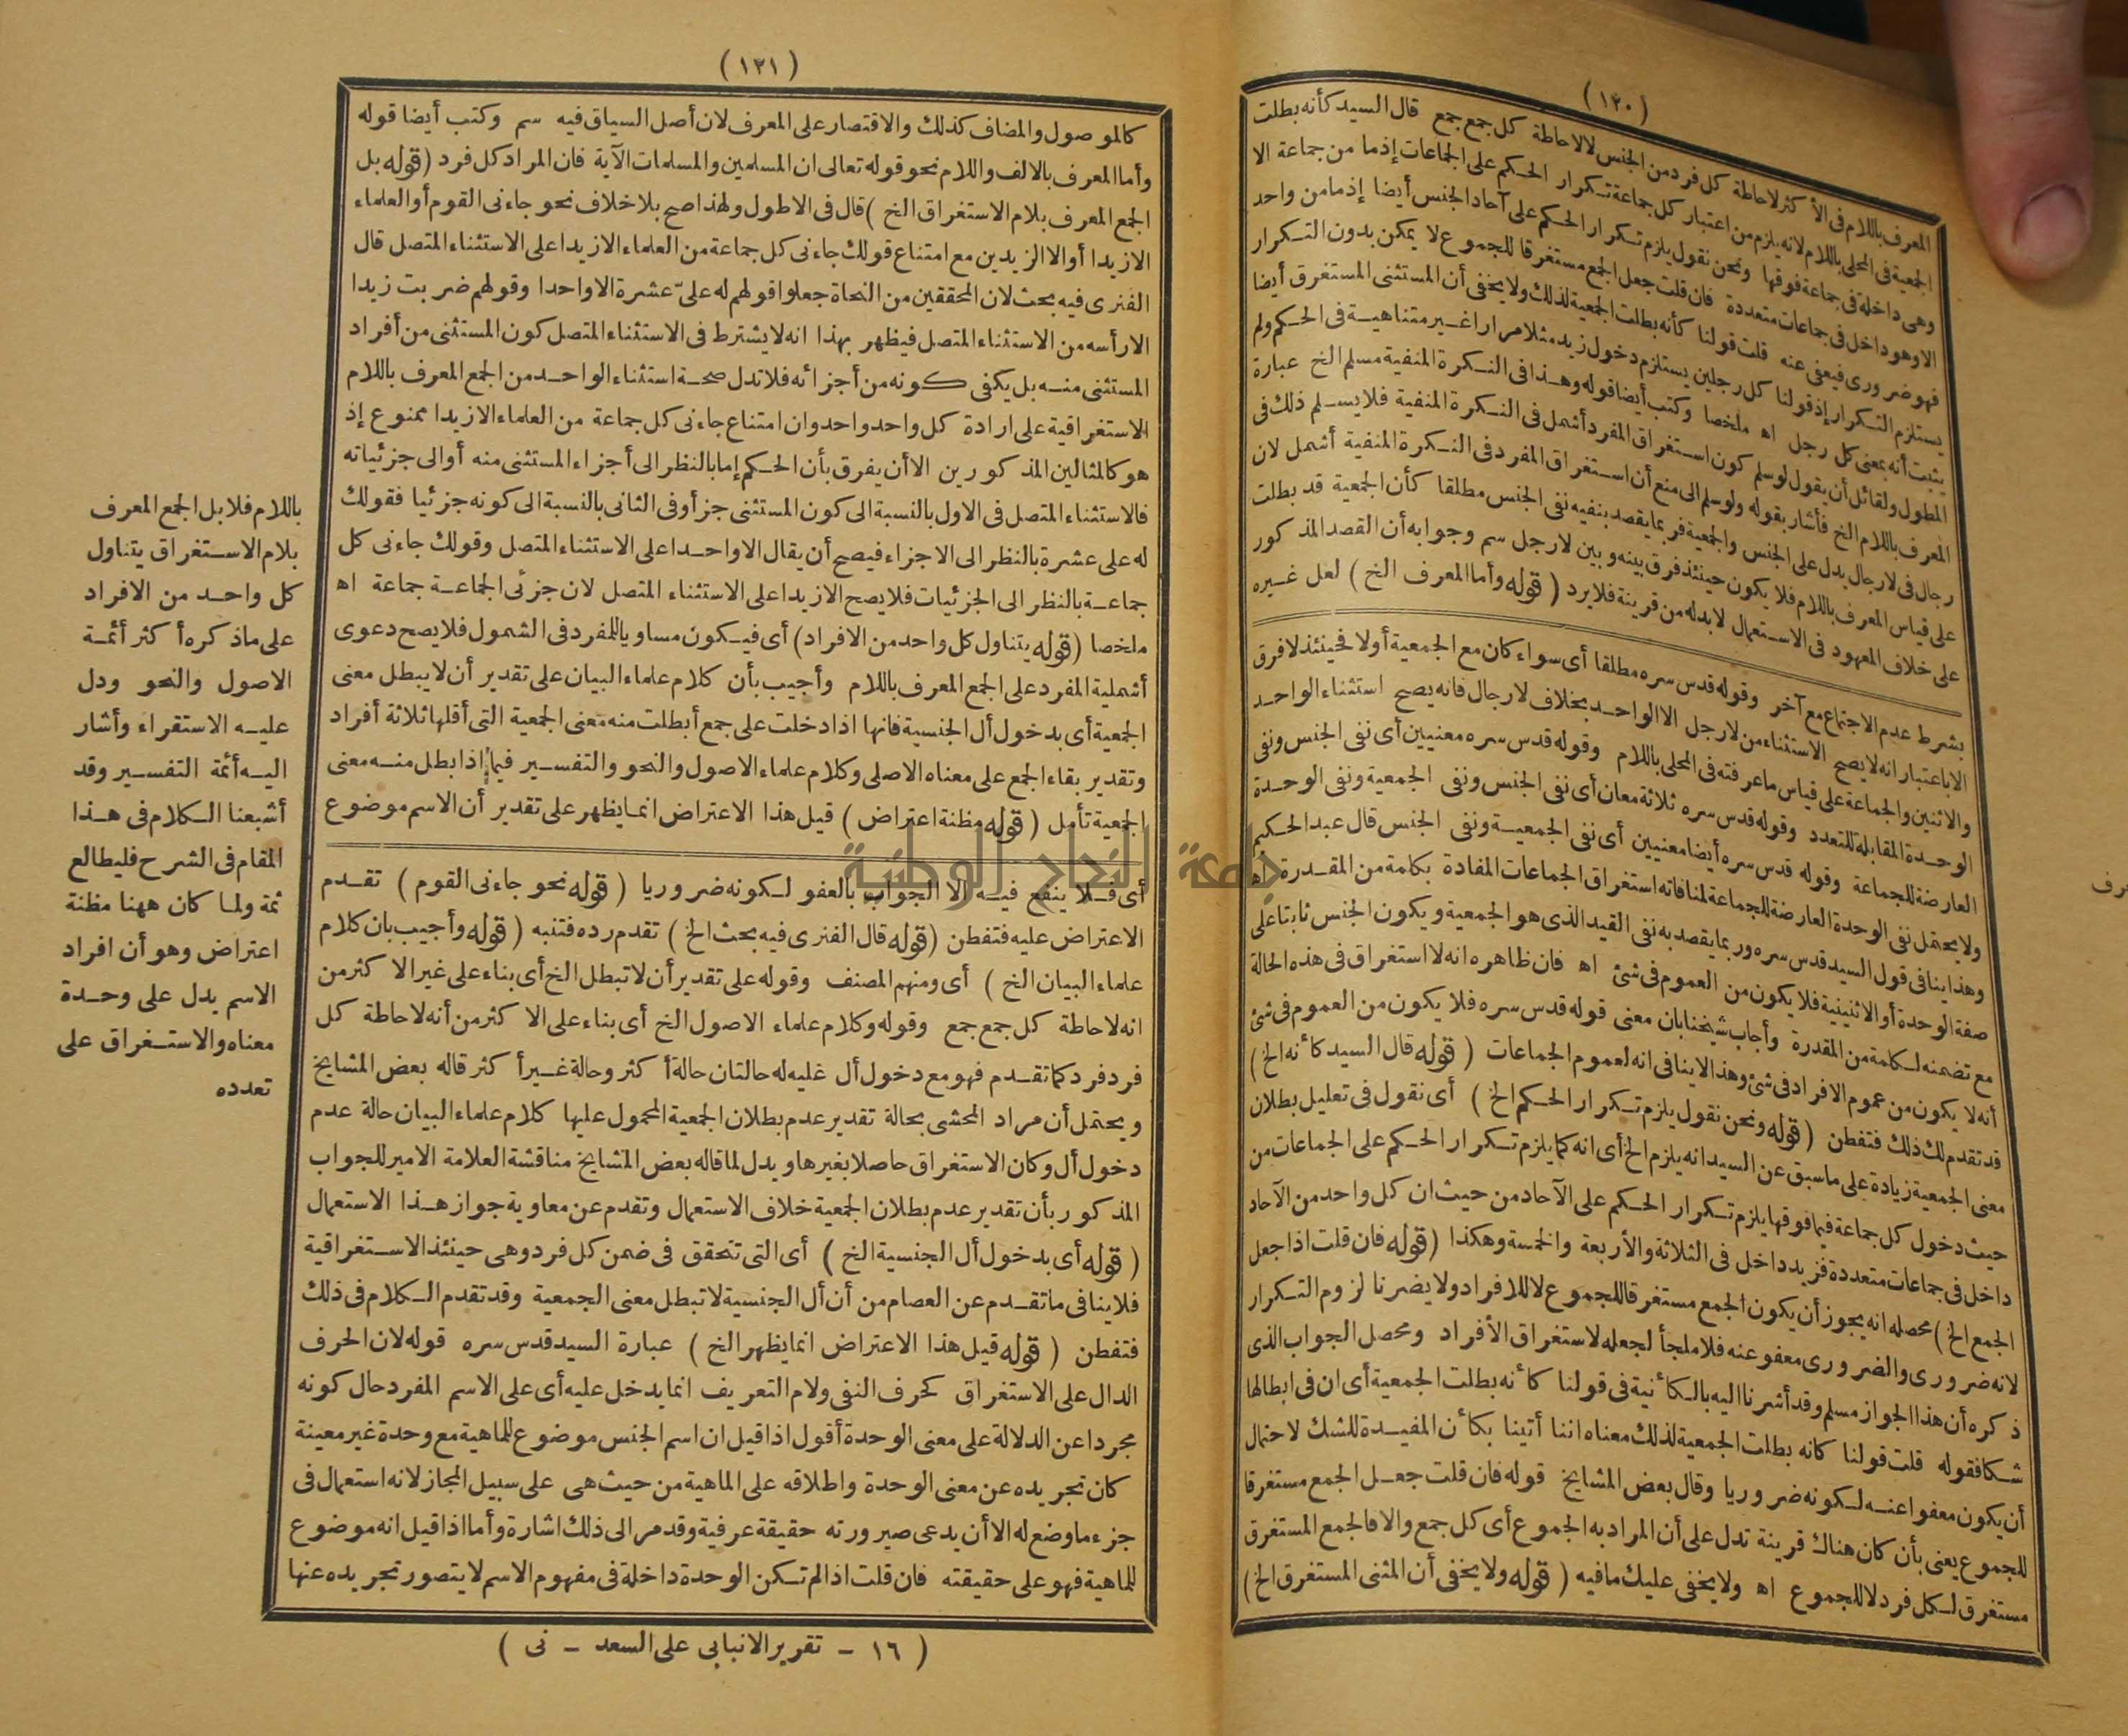 (١٢٠)
المعرف باللام في الأكثر لاحاطة كل فرد من الجنس لا لاحاطة كل جمع جمع قال السيد كأنه بطلت
الجمعية في المحلى باللام لانه يلزم من اعتبار كل جماعة تكرار الحكم على الجماعات إذ ما من جماعة الا
وهي داخلة في جماعة فوقها ونحن نقول يلزم تكرار الحكم على آحاد الجنس أيضا إذ ما من واحد
الا وهو داخل في جماعات متعددة فان قلت جعل الجمع مستغرقا للجموع لا يمكن بدون التكرار
فهو ضروري فيعفى عنه قلت قولنا كأنه بطلت الجمعية لذلك ولا يخفى أن المستثنى المستغرق أيضا
يستلزم التكرار إذ قولنا كل رجلين يستلزم دخول زيد مثلا مرارا غير متناهية في الحكم ولم
يثبت أنه بمعنى كل رجل اه ملخصا وكتب أيضا قوله وهذا في النكرة المنفية مسلم الخ عبارة
المطول ولقائل أن يقول لو سلم كون استغراق المفرد أشمل في النكرة المنفية فلا يسلم ذلك في
المعرف باللام الخ فأشار بقوله ولو سلم الى منع أن استغراق المفرد في النكرة المنفية أشمل لان
رجال في لا رجال يدل على الجنس والجمعية فربما يقصد بنفيه نفى الجنس مطلقا كأن الجمعية قد بطلت
على قياس المعرف باللام فلا يكون حينئذ فرق بينه وبين لا رجل سم وجوابه أن القصد المذكور
على خلاف المعهود في الاستعمال لابد له من قرينة فلا يرد (قوله وأما المعرف الخ) لعل غيره
بشرط عدم الاجتماع مع آخر وقوله قدس سره مطلقا أي سواء كان مع الجمعية أولا فحينئذ لا فرق
الا باعتبار انه لا يصح الاستثناء من لا رجل الا الواحد بخلاف لا رجال فانه يصح استثناء الواحد
والاثنين والجماعة على قياس ما عرفته في المحلى باللام وقوله قدس سره معنيين أي نفى الجنس ونفى
الوحدة المقابلة للتعدد وقوله قدس سره ثلاثة معان أي نفى الجنس ونفى الجمعية ونفى الوحدة
العارضة للجماعة وقوله قدس سره أيضا معنيين أي نفى الجمعية ونفى الجنس قال عبد الحكيم
ولا يحتمل نفى الوحدة العارضة للجماعة لمنافاته استغراق الجماعات المفادة بكلمة من المقدرة اه
وهذا ينافي قول السيد قدس سره وربما يقصد به نفى القيد الذي هو الجمعية ويكون الجنس ثابتا على
صفة الوحدة أو الاثنينية فلا يكون من العموم في شئ اه فان ظاهره انه لا استغراق في هذه الحالة
مع تضمنه لكلمة من المقدرة وأجاب شيخنا بان معنى قوله قدس سره فلا يكون من العموم في شئ
أنه لا يكون من عموم الافراد في شئ وهذا لا ينافي انه لعموم الجماعات (قوله قال السيد كأنه الخ)
قد تقدم لك ذلك فتفطن (قوله ونحن نقول يلزم تكرار الحكم الخ) أي نقول في تعليل بطلان
معنى الجمعية زيادة على ما سبق عن السيد انه يلزم الخ أي انه كما يلزم تكرار الحكم على الجماعات من
حيث دخول كل جماعة فيما فوقها يلزم تكرار الحكم على الآحاد من حيث ان كل واحد من الآحاد
داخل في جماعات متعددة فزيد داخل في الثلاثة والأربعة والخمسة وهكذا (قوله فان قلت اذا جعل
الجمع الخ) محصله انه يجوز أن يكون الجمع مستغرقا للجموع لا للافراد ولا يضرنا لزوم التكرار
لانه ضروري والضروري معفو عنه فلا ملجأ لجعله لاستغراق الأفراد ومحصل الجواب الذي
ذكره أن هذا الجواز مسلم وقد أشرنا اليه بالكأنية في قولنا كأنه بطلت الجمعية أي ان في ابطالها
شكا فقوله قلت قولنا كانه بطلت الجمعية لذلك معناه اننا أتينا بكأن المفيدة للشك لاحتمال
أن يكون معفوا عنه لكونه ضروريا وقال بعض المشايخ قوله فان قلت جعل الجمع مستغرقا
للجموع يعنى بأن كان هناك قرينة تدل على أن المراد به الجموع أي كل جمع والا فالجمع المستغرق
مستغرق لكل فرد لا للجموع اه ولا يخفى عليك ما فيه (قوله ولا يخفى أن المثنى المستغرق الخ)
(١٢١)
كالموصول والمضاف كذلك والاقتصار على المعرف لان أصل السياق فيه سم وكتب أيضا قوله
وأما المعرف بالالف واللام نحو قوله تعالى ان المسلمين والمسلمات الآية فان المراد كل فرد (قوله بل
الجمع المعرف بلام الاستغراق الخ) قال في الاطول ولهذا صح بلا خلاف نحو جاءنى القوم أو العلماء
الا زيدا أو الا الزيدين مع امتناع قولك جاءنى كل جماعة من العلماء الا زيدا على الاستثناء المتصل قال
الفنرى فيه بحث لان المحققين من النحاة جعلوا قولهم له علىّ عشرة الا واحدا وقولهم ضربت زيدا
الا رأسه من الاستثناء المتصل فيظهر بهذا انه لا يشترط في الاستثناء المتصل كون المستثنى من أفراد
المستثنى منه بل يكفى كونه من أجزائه فلا تدل صحة استثناء الواحد من الجمع المعرف باللام
الاستغراقية على ارادة كل واحد واحد وان امتناع جاءنى كل جماعة من العلماء الا زيدا ممنوع إذ
هو كالمثالين المذكورين الا أن يفرق بأن الحكم إما بالنظر الى أجزاء المستثنى منه أو الى جزئياته
فالاستثناء المتصل في الاول بالنسبة الى كون المستثنى جزأ وفي الثانى بالنسبة الى كونه جزئيا فقولك
له على عشرة بالنظر الى الاجزاء فيصح أن يقال الا واحدا على الاستثناء المتصل وقولك جاءنى كل
جماعة بالنظر الى الجزئيات فلا يصح الا زيدا على الاستثناء المتصل لان جزئى الجماعة جماعة اه
ملخصا (قوله يتناول كل واحد من الافراد) أي فيكون مساويا للمفرد في الشمول فلا يصح دعوى
أشملية المفرد على الجمع المعرف باللام وأجيب بأن كلام علماء البيان على تقدير أن لا يبطل معنى
الجمعية أي بدخول أل الجنسية فانها اذا دخلت على جمع أبطلت منه معنى الجمعية التي أقلها ثلاثة أفراد
وتقدير بقاء الجمع على معناه الاصلى وكلام علماء الاصول والنحو والتفسير فيما اذا بطل منه معنى
الجمعية تأمل (قوله مظنة اعتراض) قيل هذا الاعتراض انما يظهر على تقدير أن الاسم موضوع
أي فلا ينفع فيه الا الجواب بالعفو لكونه ضروريا (قوله نحو جاءنى القوم) تقدم
الاعتراض عليه فتفطن (قوله قال الفنرى فيه بحث الخ) تقدم رده فتنبه (قوله وأجيب بان كلام
علماء البيان الخ) أي ومنهم المصنف وقوله على تقدير أن لا تبطل الخ أي بناء على غير الاكثر من
انه لاحاطة كل جمع جمع وقوله وكلام علماء الاصول الخ أي بناء على الاكثر من أنه لاحاطة كل
فرد فرد كما تقدم فهو مع دخول أل عليه له حالتان حالة أكثر وحالة غير أكثر قاله بعض المشايخ
ويحتمل أن مراد المحشى بحالة تقدير عدم بطلان الجمعية المحمول عليها كلام علماء البيان حالة عدم
دخول أل وكان الاستغراق حاصلا بغيرها ويدل لما قاله بعض المشايخ مناقشة العلامة الامير للجواب
المذكور بأن تقدير عدم بطلان الجمعية خلاف الاستعمال وتقدم عن معاوية جواز هذا الاستعمال
(قوله أي بدخول أل الجنسية الخ) أي التي تتحقق في ضمن كل فرد وهي حينئذ الاستغراقية
فلا ينافى ما تقدم عن العصام من أن أل الجنسية لا تبطل معنى الجمعية وقد تقدم الكلام في ذلك
فتفطن (قوله قيل هذا الاعتراض انما يظهر الخ) عبارة السيد قدس سره قوله لان الحرف
الدال على الاستغراق كحرف النفى ولام التعريف انما يدخل عليه أي على الاسم المفرد حال كونه
مجردا عن الدلالة على معنى الوحدة أقول اذا قيل ان اسم الجنس موضوع للماهية مع وحدة غير معينة
كان تجريده عن معنى الوحدة واطلاقه على الماهية من حيث هي على سبيل المجاز لانه استعمال في
جزء ما وضع له الا أن يدعى صيرورته حقيقة عرفية وقد مر الى ذلك اشارة وأما اذا قيل انه موضوع
للماهية فهو على حقيقته فان قلت اذا لم تكن الوحدة داخلة في مفهوم الاسم لا يتصور تجريده عنها
(١٦ - تقرير الانبابى على السعد - نى)
باللام فلا بل الجمع المعرف
بلام الاستغراق يتناول
كل واحد من الافراد
على ما ذكره أكثر أئمة
الاصول والنحو ودل
عليه الاستقراء وأشار
اليه أئمة التفسير وقد
أشبعنا الكلام في هذا
المقام في الشرح فليطالع
ثمة ولما كان ههنا مظنة
اعتراض وهو أن افراد
الاسم يدل على وحدة
معناه والاستغراق على
تعدده
جامعة النجاح الوطنية